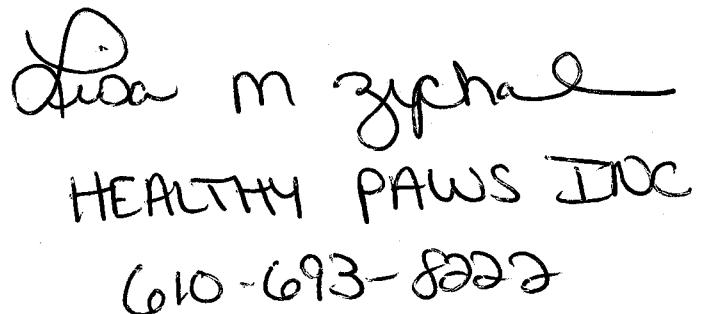 Lisa M Zychal
HEALTHY PAWS INC
610-693-8222